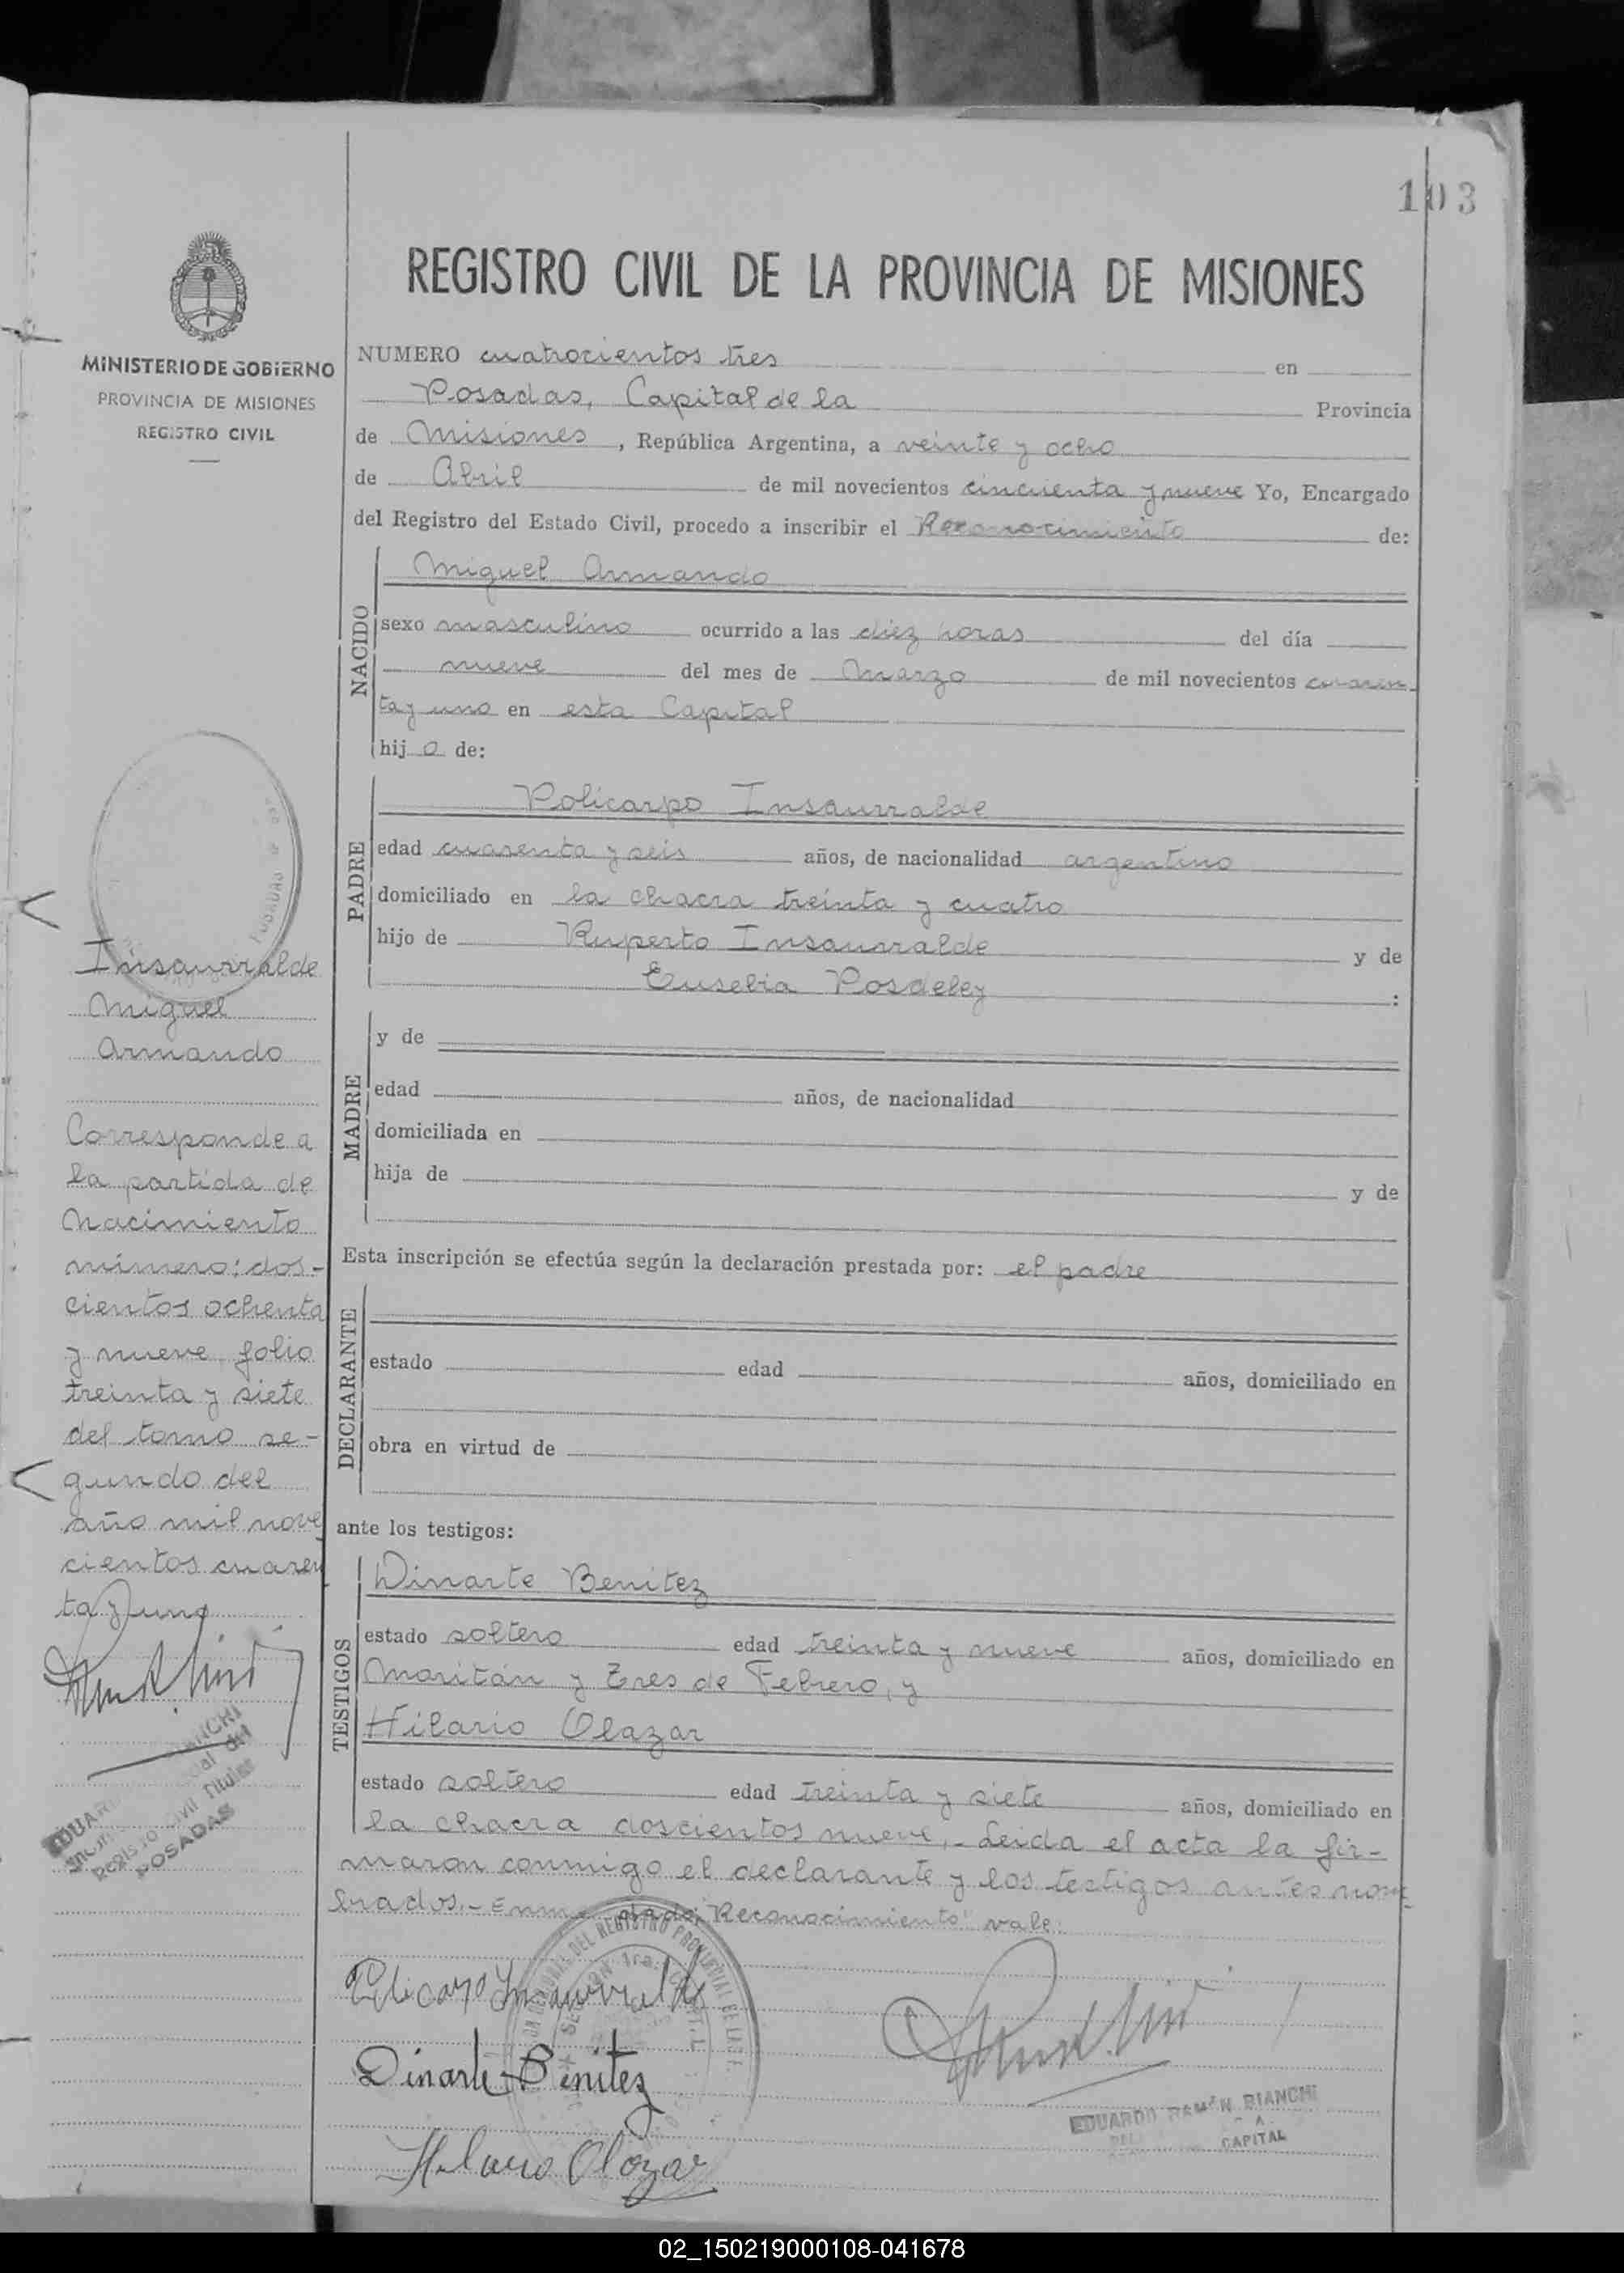 103
REGISTRO CIVIL DE LA PROVINCIA DE MISIONES
MINISTERIO DE GOBIERNO
PROVINCIA DE MISIONES
REGISTRO CIVIL
NUMERO cuatrocientos tres en
Posadas, Capital de la Provincia
de Misiones, República Argentina, a veinte y ocho
de Abril de mil novecientos cincuenta y nueve Yo, Encargado
del Registro del Estado Civil, procedo a inscribir el Reconocimiento de:
NACIDO
Miguel Armando
sexo masculino ocurrido a las diez horas del día
nueve del mes de Marzo de mil novecientos cuaren-
ta y uno en esta Capital
hij o de:
PADRE
Policarpo Insaurralde
edad cuarenta y seis años, de nacionalidad argentino
domiciliado en la chacra treinta y cuatro
hijo de Ruperto Insaurralde y de
Eusebia Posdeley :
MADRE
y de
edad años, de nacionalidad
domiciliada en
hija de y de
Esta inscripción se efectúa según la declaración prestada por: el padre
DECLARANTE
estado edad años, domiciliado en
obra en virtud de
ante los testigos:
TESTIGOS
Dinarte Benitez
estado soltero edad treinta y nueve años, domiciliado en
Maritán y Tres de Febrero, y
Hilario Olazar
estado soltero edad treinta y siete años, domiciliado en
la chacra doscientos nueve.- Leida el acta la fir-
maron conmigo el declarante y los testigos antes nom-
brados.- Enmendado: "Reconocimiento" vale.
Policarpo Insaurralde
Dinarte Benitez
Hilario Olazar
EDUARDO RAMÓN BIANCHI
CAPITAL
Insaurralde
Miguel
Armando
Corresponde a
la partida de
Nacimiento
número: dos-
cientos ochenta
y nueve folio
treinta y siete
del tomo se-
gundo del
año mil nove
cientos cuaren
ta y uno
Registro Civil Titular
POSADAS
02_150219000108-041678